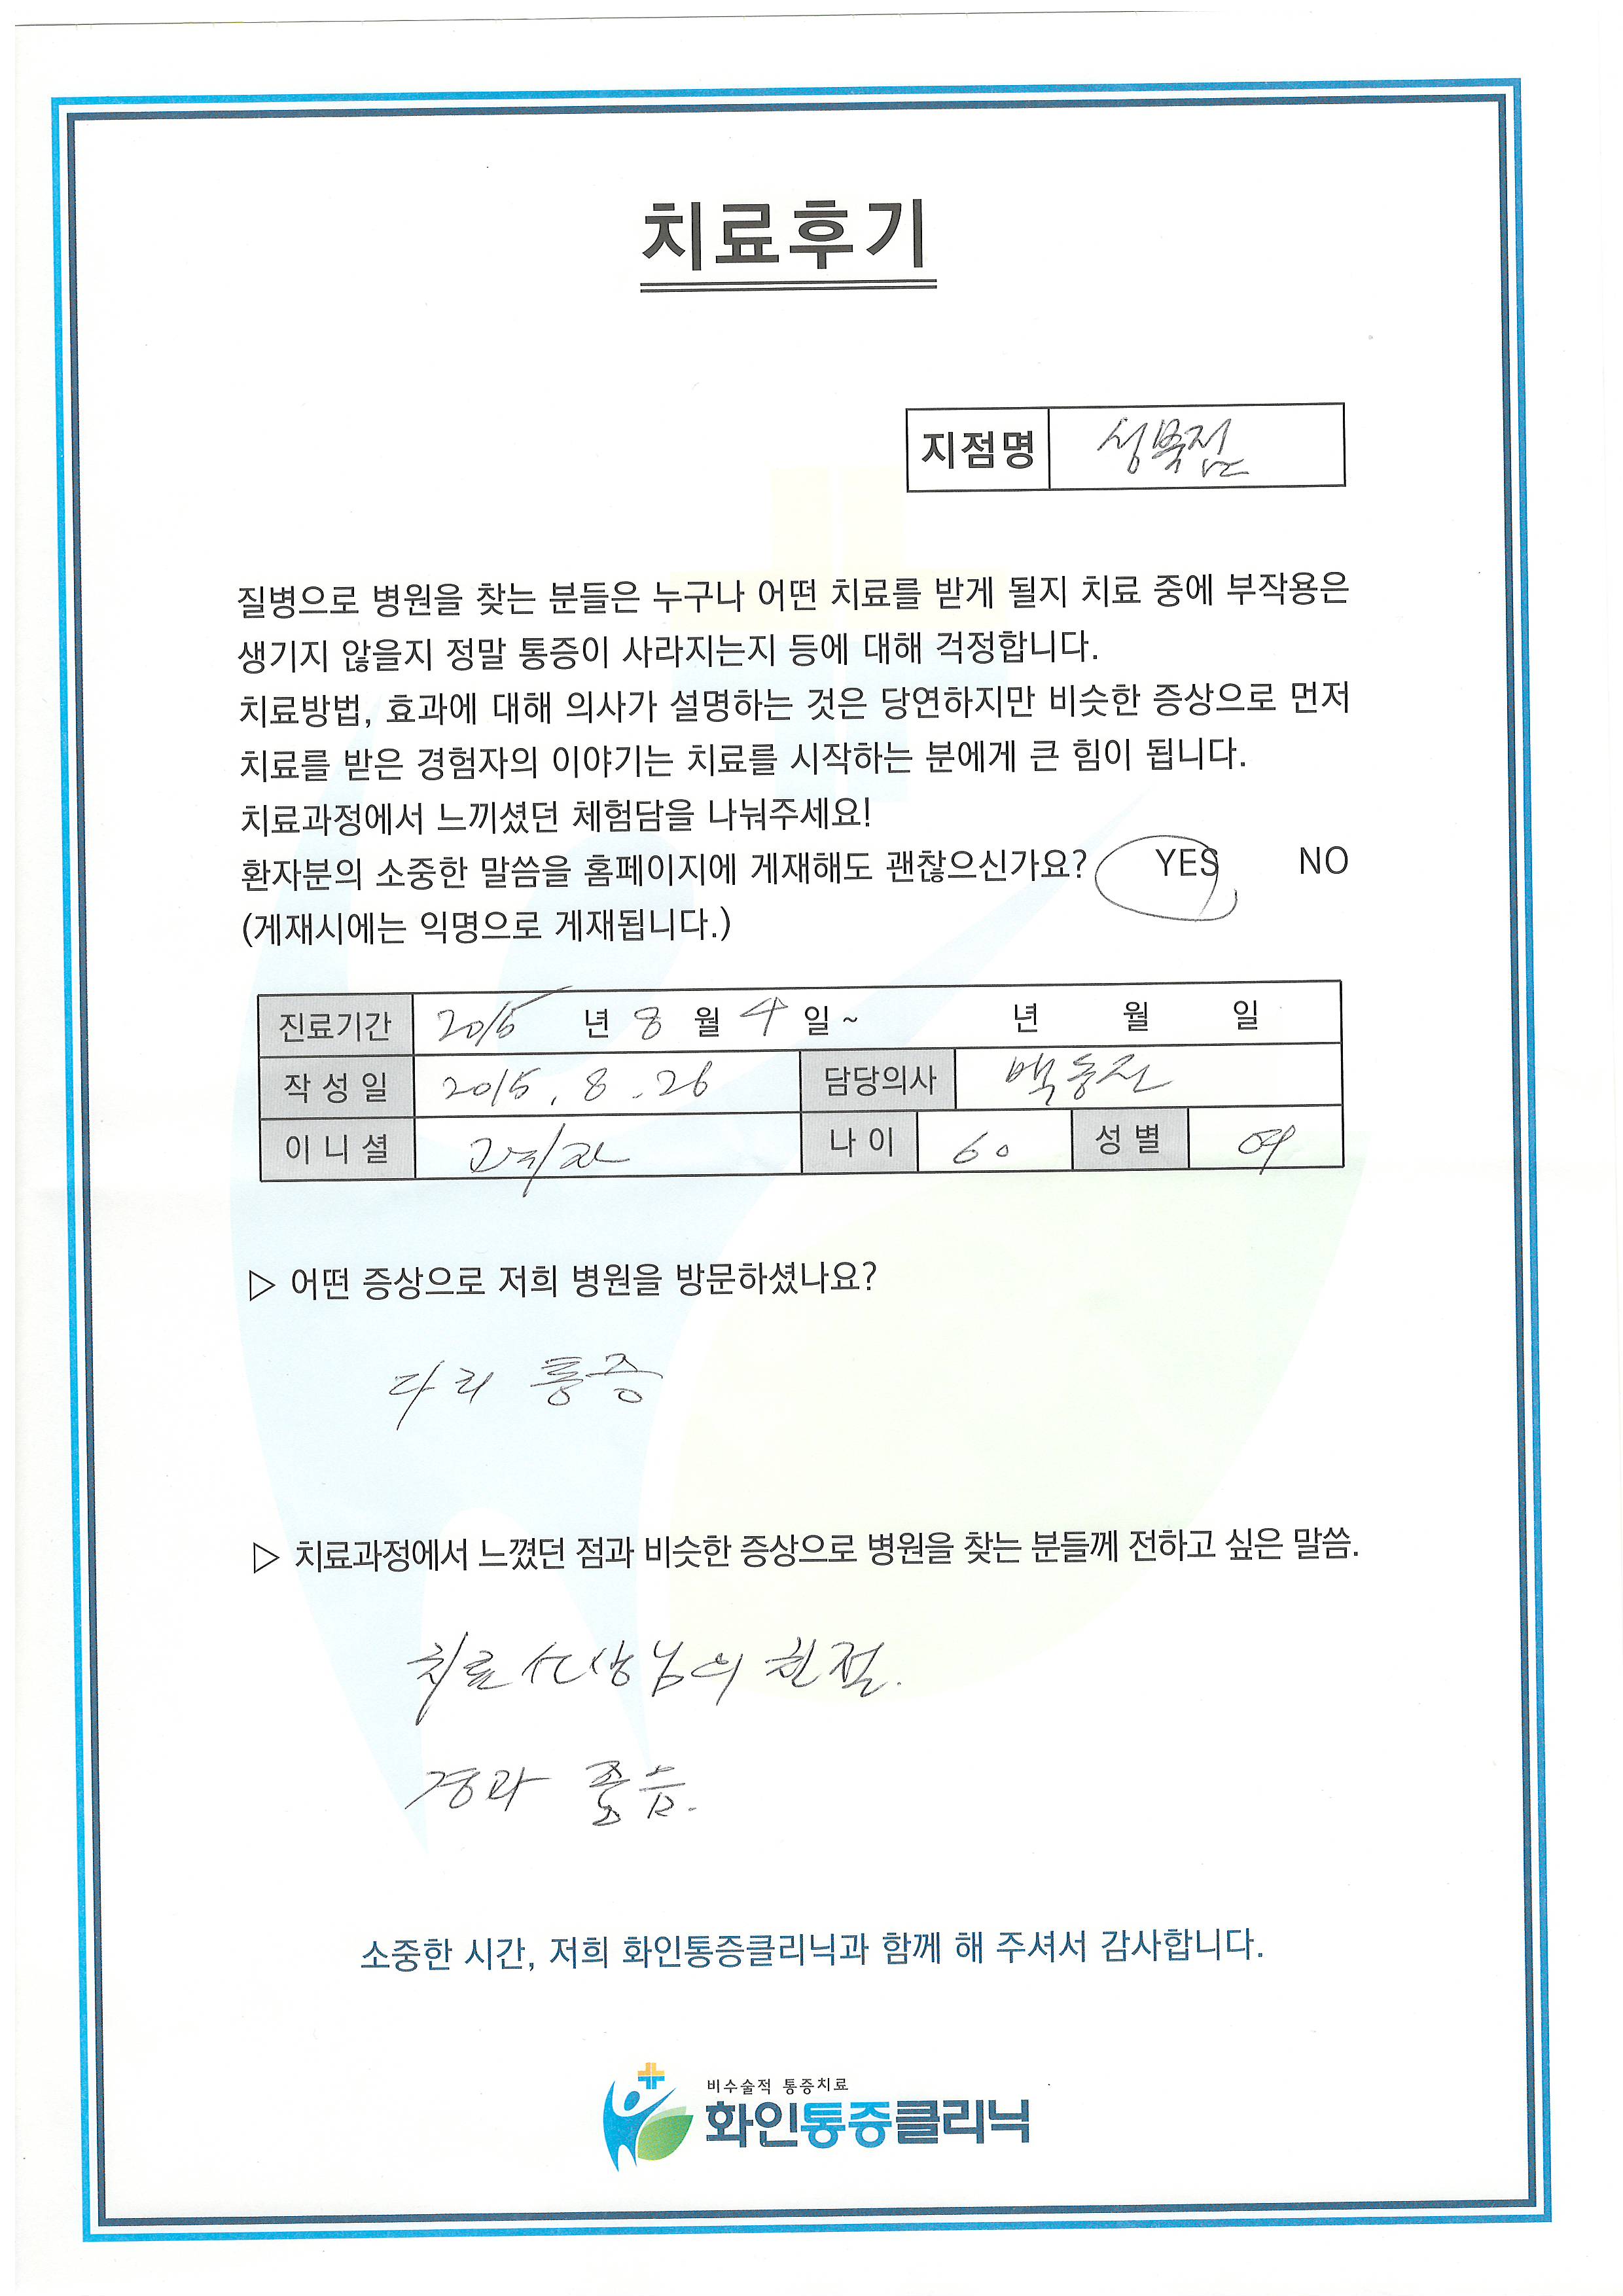 치료후기
지점명 성북점
질병으로 병원을 찾는 분들은 누구나 어떤 치료를 받게 될지 치료 중에 부작용은
생기지 않을지 정말 통증이 사라지는지 등에 대해 걱정합니다.
치료방법, 효과에 대해 의사가 설명하는 것은 당연하지만 비슷한 증상으로 먼저
치료를 받은 경험자의 이야기는 치료를 시작하는 분에게 큰 힘이 됩니다.
치료과정에서 느끼셨던 체험담을 나눠주세요!
환자분의 소중한 말씀을 홈페이지에 게재해도 괜찮으신가요? YES NO
(게재시에는 익명으로 게재됩니다.)
진료기간 2015 년 8 월 4 일 ~ 년 월 일
작성일 2015. 8. 26 담당의사 백동진
이니셜 나이 60 성별 여
▷ 어떤 증상으로 저희 병원을 방문하셨나요?
다리 통증
▷ 치료과정에서 느꼈던 점과 비슷한 증상으로 병원을 찾는 분들께 전하고 싶은 말씀.
치료 선생님의 친절.
경과 좋음.
소중한 시간, 저희 화인통증클리닉과 함께 해 주셔서 감사합니다.
비수술적 통증치료
화인통증클리닉